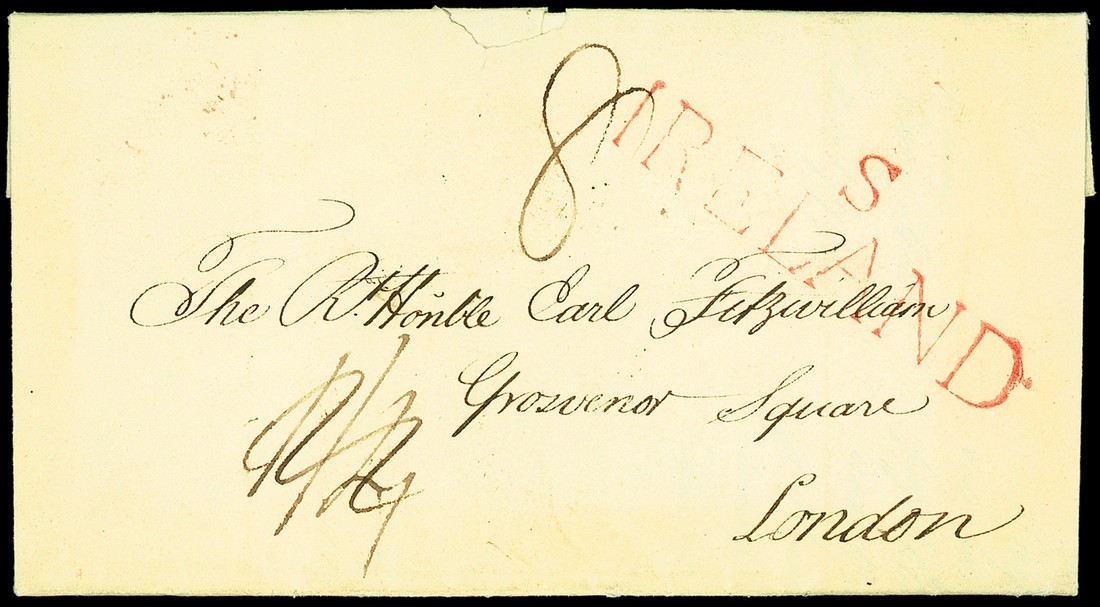 8
IRELAND
S
The Rt. Honble Earl Fitzwilliam
Grosvenor Square
London